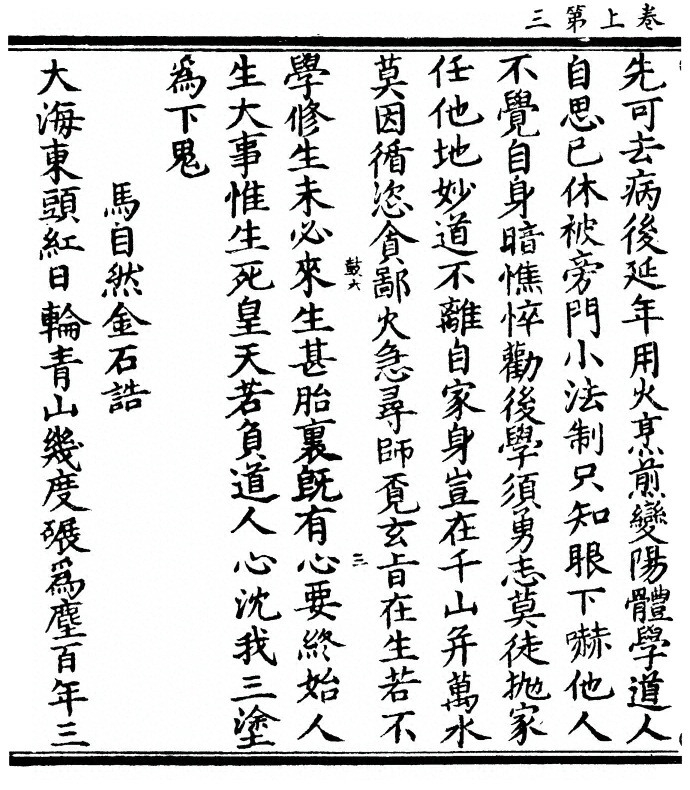 卷上第三
先可去病後延年用火烹煎變陽體學道人
自思已休被旁門小法制只知眼下嚇他人
不覺自身暗憔悴勸後學須勇志莫徒拋家
任他地妙道不離自家身豈在千山并萬水
莫因循恣貪鄙火急尋師覓玄旨在生若不
鼓六
三
學修生未必來生甚胎裏既有心要終始人
生大事惟生死皇天若負道人心沈我三塗
為下鬼
馬自然金石誥
大海東頭紅日輪青山幾度碾為塵百年三